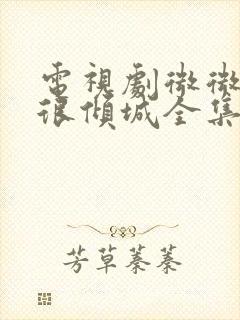 電視劇微微
很傾城全集
芳草萋萋